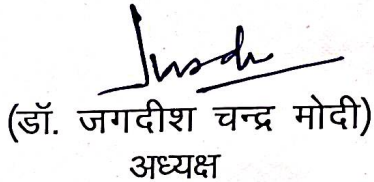 (डॉ. जगदीश चन्द्र मोदी)
अध्यक्ष